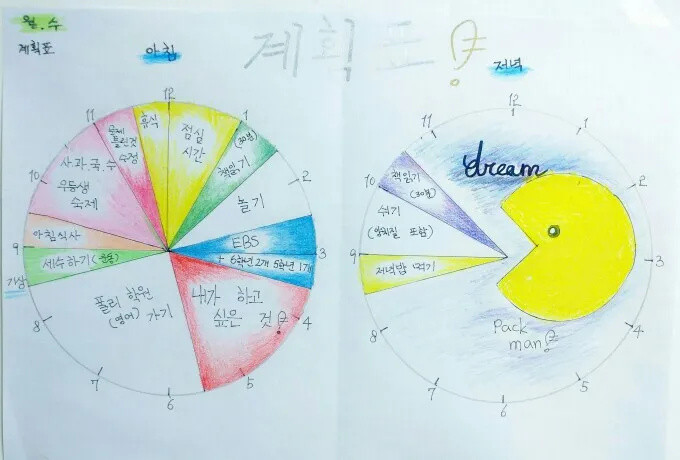 월.수
계획표
계획표!
아침
저녁
12
1
2
3
4
5
6
7
8
9
10
11
휴식
점심
시간
(30분)
책읽기
놀기
EBS
+ 6학년 2개 5학년 1개
내가 하고
싶은 것!
폴리 학원
(영어) 가기
기상
세수하기
아침식사
사과국수
우등생
숙제
문제
틀린것
수정
12
1
2
3
4
5
6
7
8
9
10
11
dream
책읽기
(30분)
쉬기
(양치질 포함)
저녁밥 먹기
Pack
man!